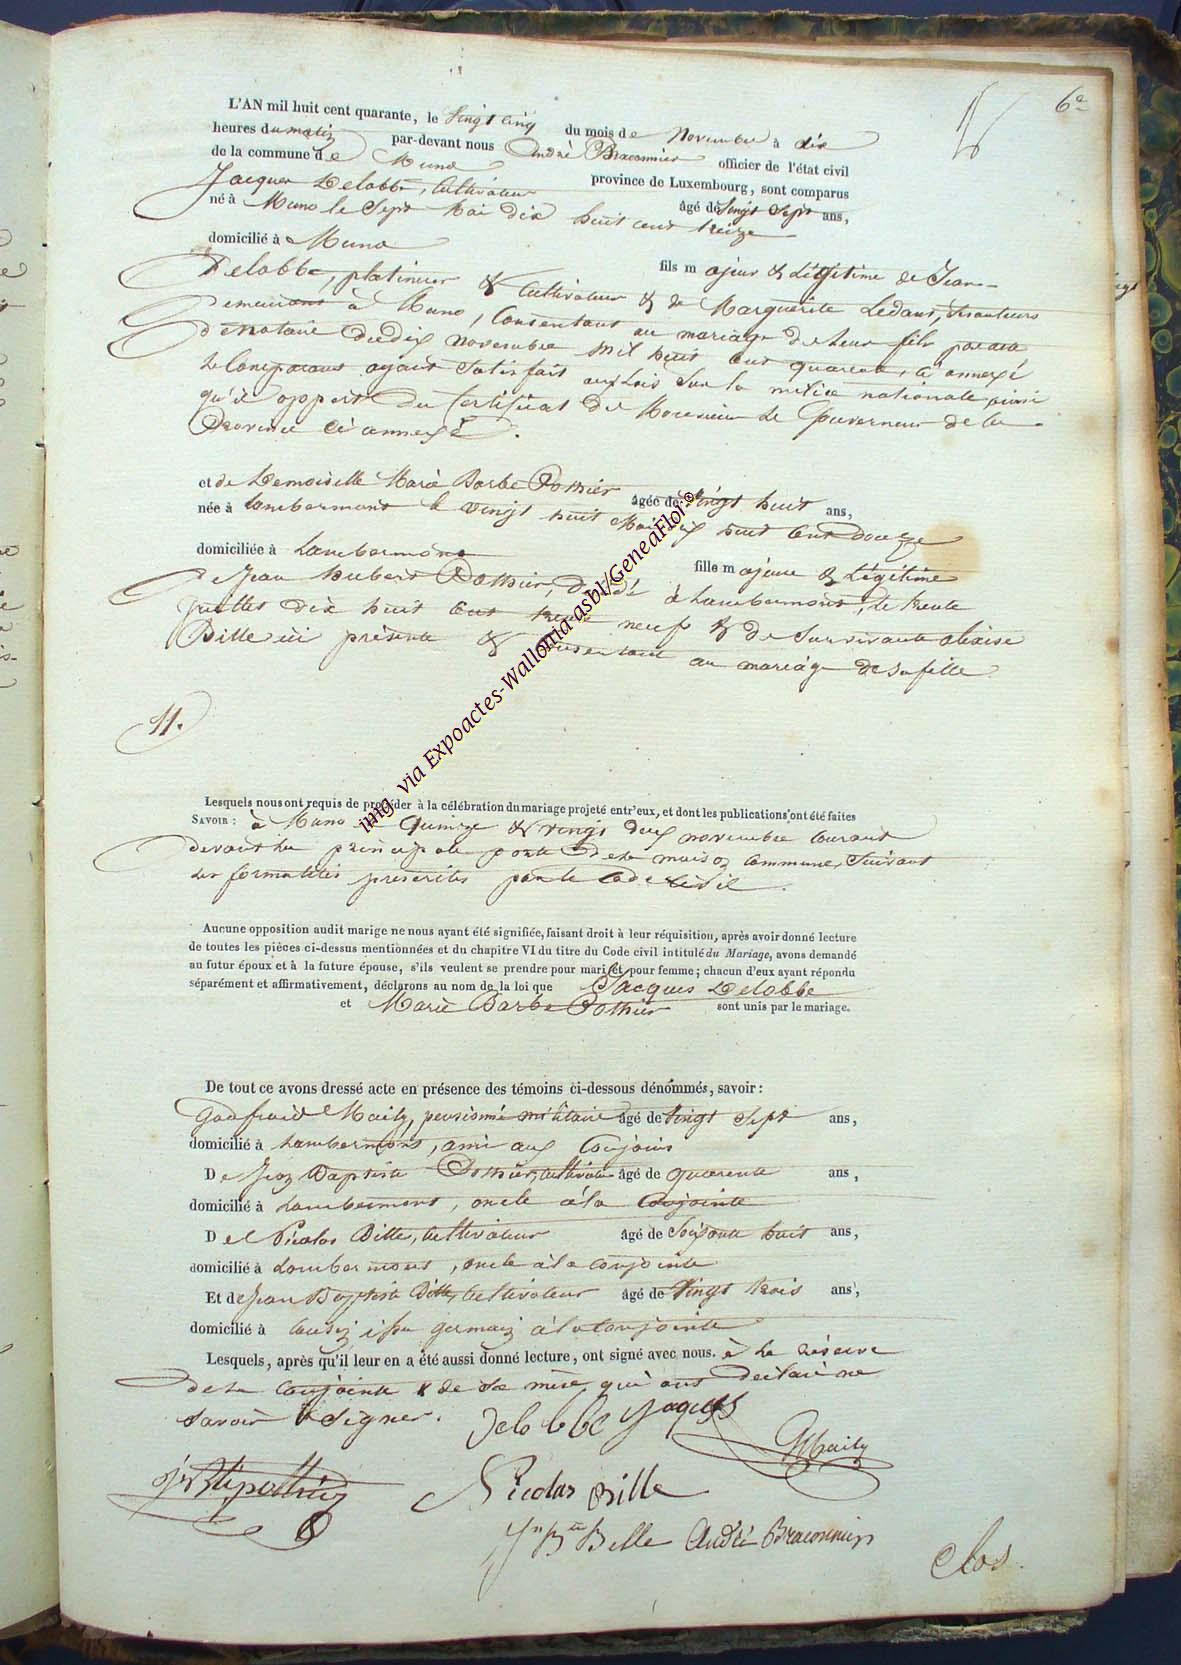 6e
L'AN mil huit cent quarante, le Vingt cinq du mois de Novembre à dix
heures du matin par-devant nous André Braconnier officier de l'état civil
de la commune de Muno province de Luxembourg, sont comparus
Jacques Delobbe, Cultivateur âgé de Vingt Sept ans,
né à Muno le Sept Mai dix huit cent treize
domicilié à Muno
fils majeur & Légitime de Jean-
Delobbe, platineur & Cultivateur & de Marguerite Ledant,
demeurant à Muno, Consentant au mariage de leur fils par acte
de Notaire du dix novembre mil huit cent quarante, ci annexé
le Comparant ayant Satisfait aux Lois Sur la milice nationale ainsi
qu'il appert du Certificat de Monsieur Le Gouverneur de la
Province ci annexé.
et de Demoiselle Marie Barbe Pothier âgée de Vingt huit ans,
née à Lambermont le vingt huit Mai dix huit cent Douze
domiciliée à Lambermont
fille majeure & Légitime
de Jean hubert Pothier, Décédé à Lambermont, le trente
Juillet dix huit Cent trente neuf & de Survivante
Bille ici présente & Consentant au mariage de sa fille
11.
Lesquels nous ont requis de procéder à la célébration du mariage projeté entr'eux, et dont les publications ont été faites
SAVOIR : à Muno le Quinze & vingt deux novembre Courant
devant la principale porte de la maison Commune, Suivant
les formalités prescrites par le Code Civil.
Aucune opposition audit marige ne nous ayant été signifiée, faisant droit à leur réquisition, après avoir donné lecture
de toutes les pièces ci-dessus mentionnées et du chapitre VI du titre du Code civil intitulé du Mariage, avons demandé
au futur époux et à la future épouse, s'ils veulent se prendre pour mari et pour femme ; chacun d'eux ayant répondu
séparément et affirmativement, déclarons au nom de la loi que Jacques Delobbe
et Marie Barbe Pothier sont unis par le mariage.
De tout ce avons dressé acte en présence des témoins ci-dessous dénommés, savoir :
Godfroid Maily, pensionné militaire âgé de Vingt Sept ans,
domicilié à Lambermont, ami aux Conjoins
De Jean Baptiste Pothier, Cultivateur âgé de quarente ans,
domicilié à Lambermont, oncle à la Conjointe
De Nicolas Bille, Cultivateur âgé de Soixante huit ans,
domicilié à Lambermont, oncle à la conjointe
Et de Jean Baptiste Bille, Cultivateur âgé de Vingt trois ans,
domicilié à Cousin issu germain à la Conjointe
Lesquels, après qu'il leur en a été aussi donné lecture, ont signé avec nous. à la réserve
de la Conjointe & de sa mère qui ont déclaré ne
savoir Signer.
Delobbe Jaques
GMaily
Jn Bte pothier
Nicolas Bille
Jn Bte Bille André Braconnier
Clos.
img via Expoactes-Wallonia-asbl/GeneaFloi ©